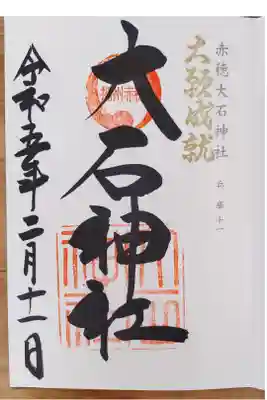 赤穂大石神社
大願成就
大石神社
令和五年二月十一日